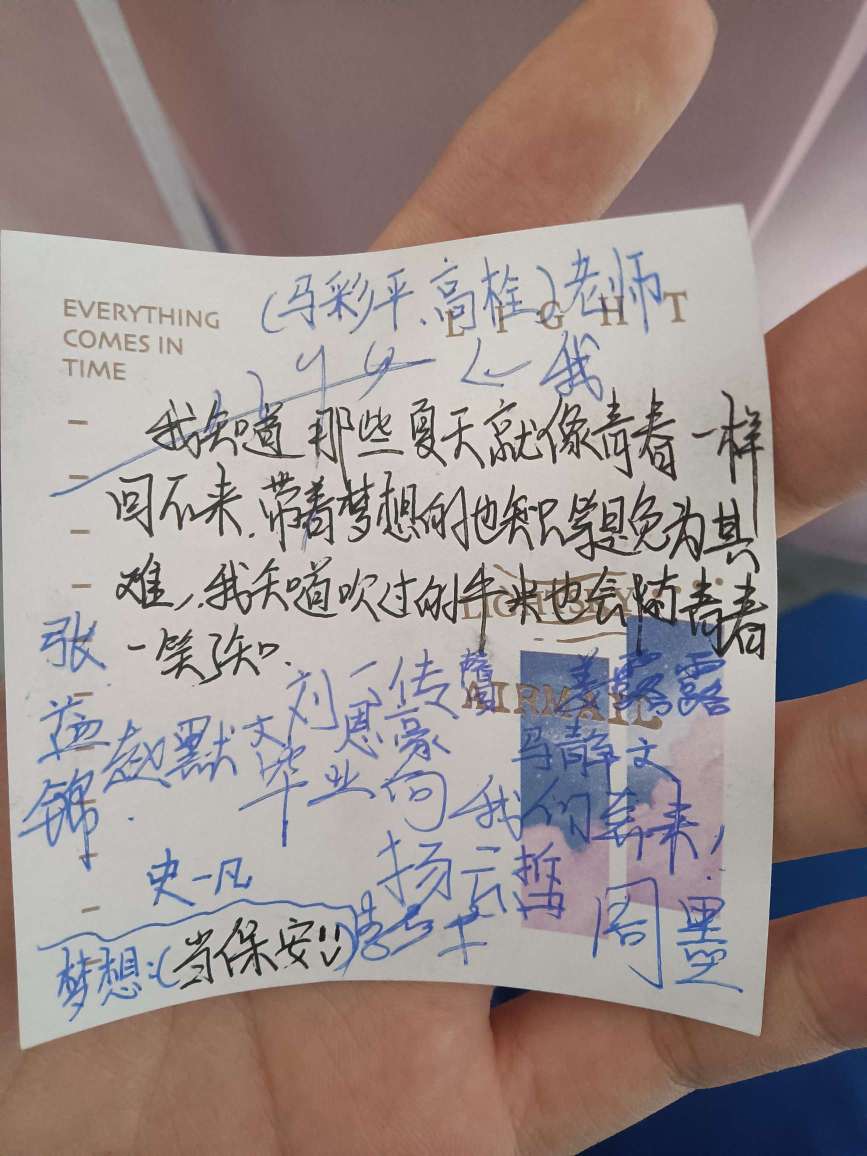 EVERYTHING
COMES IN
TIME
LIGHT
(马彩平、高栓)老师
← 我
我知道那些夏天就像青春一样
回不来,带着梦想的也
免为其
难,我知道吹过的牛也会随青春
一笑
张益锦
赵默文
刘恩传
姜露露
AIRMAIL
马静文
毕业向我们奔来!
史一凡
杨云哲
周墨
梦想:(当保安!!)